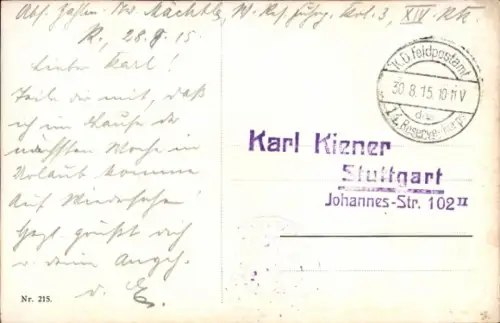 Abs. Zahlm. Mächtle, W. Res. Fuhrp. Kol. 3, XIV. RK
R., 28.8.15.
Lieber Karl!
Teile dir mit, daß
ich im Laufe der
nächsten Woche in
Urlaub komme
Auf Wiedersehn!
Herzl. grüßt dich
u. deine Angeh.
d. E.
K.D. Feldpostamt
30.8.15. 10-11 V
des
XIV. Reserve-Korps
Karl Kiener
Stuttgart
Johannes-Str. 102 II
Nr. 215.